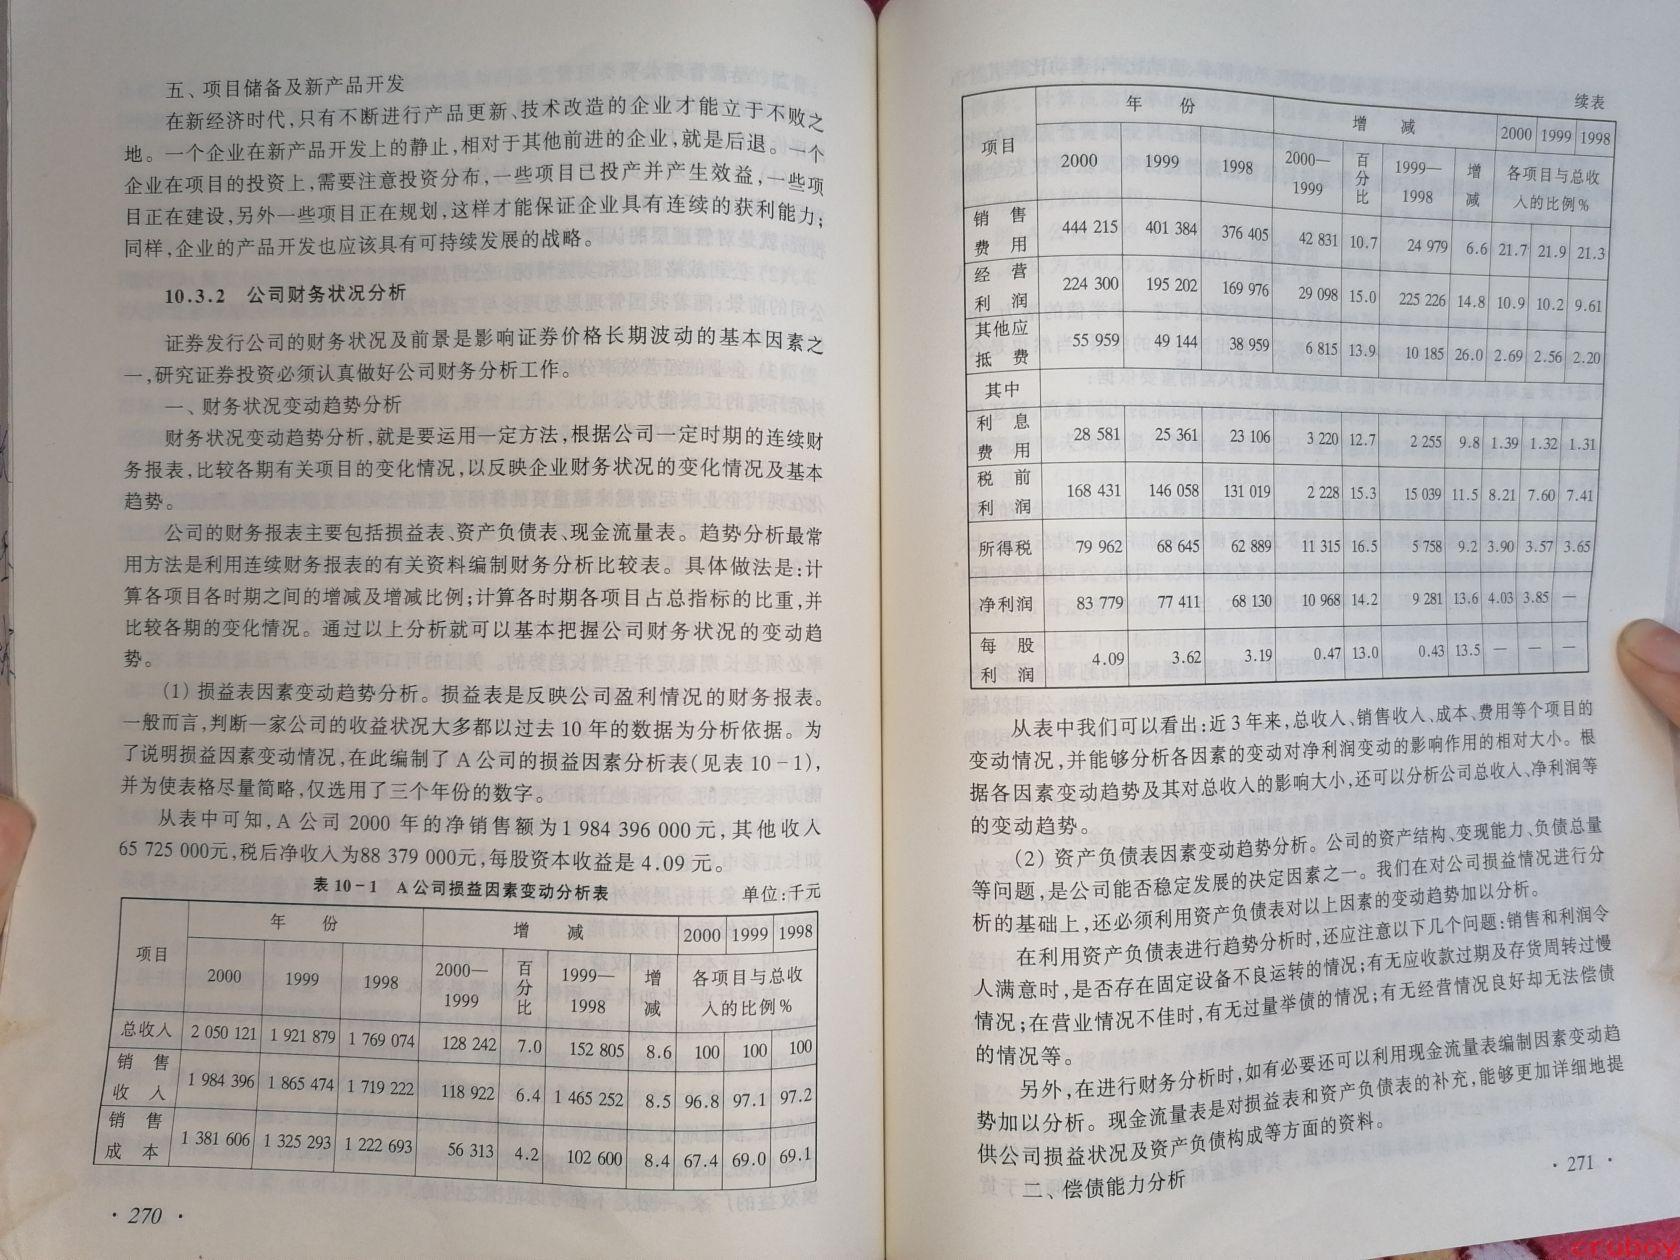 五、项目储备及新产品开发
在新经济时代,只有不断进行产品更新、技术改造的企业才能立于不败之
地。一个企业在新产品开发上的静止,相对于其他前进的企业,就是后退。一个
企业在项目的投资上,需要注意投资分布,一些项目已投产并产生效益,一些项
目正在建设,另外一些项目正在规划,这样才能保证企业具有连续的获利能力;
同样,企业的产品开发也应该具有可持续发展的战略。
10.3.2 公司财务状况分析
证券发行公司的财务状况及前景是影响证券价格长期波动的基本因素之
一,研究证券投资必须认真做好公司财务分析工作。
一、财务状况变动趋势分析
财务状况变动趋势分析,就是要运用一定方法,根据公司一定时期的连续财
务报表,比较各期有关项目的变化情况,以反映企业财务状况的变化情况及基本
趋势。
公司的财务报表主要包括损益表、资产负债表、现金流量表。趋势分析最常
用方法是利用连续财务报表的有关资料编制财务分析比较表。具体做法是:计
算各项目各时期之间的增减及增减比例;计算各时期各项目占总指标的比重,并
比较各期的变化情况。通过以上分析就可以基本把握公司财务状况的变动趋
势。
(1) 损益表因素变动趋势分析。损益表是反映公司盈利情况的财务报表。
一般而言,判断一家公司的收益状况大多都以过去 10 年的数据为分析依据。为
了说明损益因素变动情况,在此编制了 A 公司的损益因素分析表(见表 10-1),
并为使表格尽量简略,仅选用了三个年份的数字。
从表中可知,A 公司 2000 年的净销售额为 1 984 396 000 元,其他收入
65 725 000元,税后净收入为88 379 000元,每股资本收益是 4.09 元。
表 10-1 A 公司损益因素变动分析表 单位:千元
项目 年 份 增 减 2000 1999 1998
2000 1999 1998 2000—1999 百分比 1999—1998 增减 各项目与总收入的比例%
总收入 2 050 121 1 921 879 1 769 074 128 242 7.0 152 805 8.6 100 100 100
销售收入 1 984 396 1 865 474 1 719 222 118 922 6.4 1 465 252 8.5 96.8 97.1 97.2
销售成本 1 381 606 1 325 293 1 222 693 56 313 4.2 102 600 8.4 67.4 69.0 69.1
· 270 ·
续表
项目 年 份 增 减 2000 1999 1998
2000 1999 1998 2000—1999 百分比 1999—1998 增减 各项目与总收入的比例%
销售费用 444 215 401 384 376 405 42 831 10.7 24 979 6.6 21.7 21.9 21.3
经营利润 224 300 195 202 169 976 29 098 15.0 225 226 14.8 10.9 10.2 9.61
其他应抵费 55 959 49 144 38 959 6 815 13.9 10 185 26.0 2.69 2.56 2.20
其中
利息费用 28 581 25 361 23 106 3 220 12.7 2 255 9.8 1.39 1.32 1.31
税前利润 168 431 146 058 131 019 2 228 15.3 15 039 11.5 8.21 7.60 7.41
所得税 79 962 68 645 62 889 11 315 16.5 5 758 9.2 3.90 3.57 3.65
净利润 83 779 77 411 68 130 10 968 14.2 9 281 13.6 4.03 3.85 —
每股利润 4.09 3.62 3.19 0.47 13.0 0.43 13.5 — — —
从表中我们可以看出:近 3 年来,总收入、销售收入、成本、费用等个项目的
变动情况,并能够分析各因素的变动对净利润变动的影响作用的相对大小。根
据各因素变动趋势及其对总收入的影响大小,还可以分析公司总收入、净利润等
的变动趋势。
(2) 资产负债表因素变动趋势分析。公司的资产结构、变现能力、负债总量
等问题,是公司能否稳定发展的决定因素之一。我们在对公司损益情况进行分
析的基础上,还必须利用资产负债表对以上因素的变动趋势加以分析。
在利用资产负债表进行趋势分析时,还应注意以下几个问题:销售和利润令
人满意时,是否存在固定设备不良运转的情况;有无应收款过期及存货周转过慢
情况;在营业情况不佳时,有无过量举债的情况;有无经营情况良好却无法偿债
的情况等。
另外,在进行财务分析时,如有必要还可以利用现金流量表编制因素变动趋
势加以分析。现金流量表是对损益表和资产负债表的补充,能够更加详细地提
供公司损益状况及资产负债构成等方面的资料。
二、偿债能力分析
· 271 ·